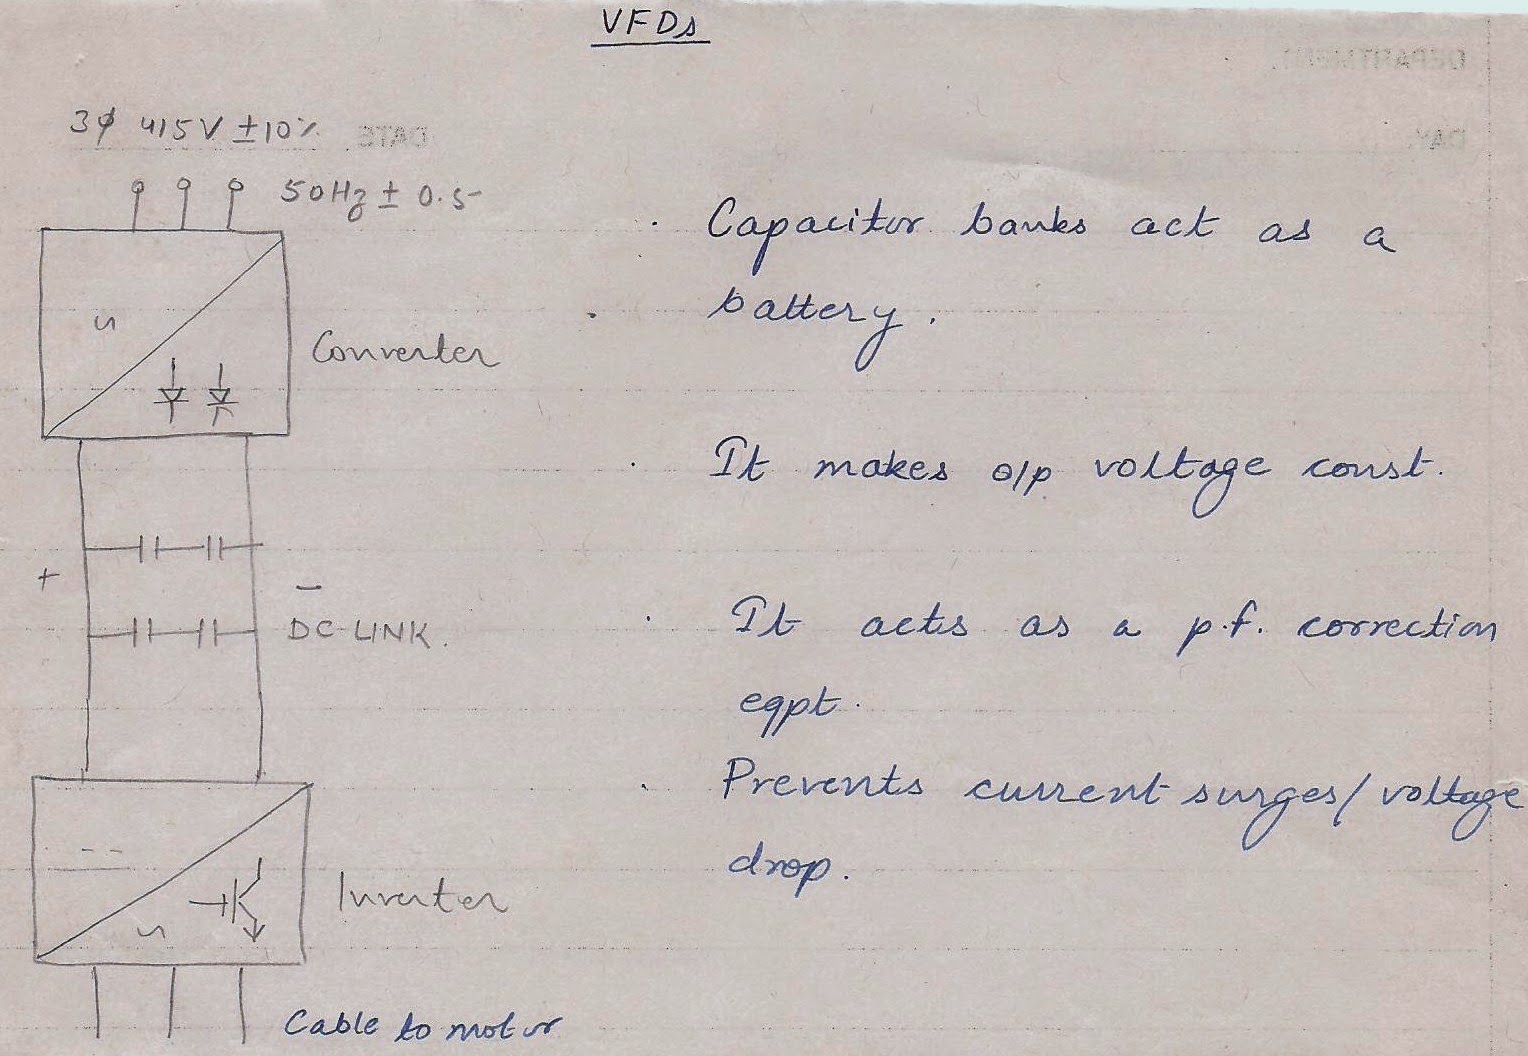 VFDs
DEPARTMENT.
DATE
DAY.
3φ 415V ±10%
50Hz ± 0.5
Converter
+
–
DC-LINK.
Inverter
Cable to motor
. Capacitor banks act as a
. battery.
. It makes o/p voltage const.
. It acts as a p.f. correction
eqpt.
. Prevents current surges/voltage
drop.